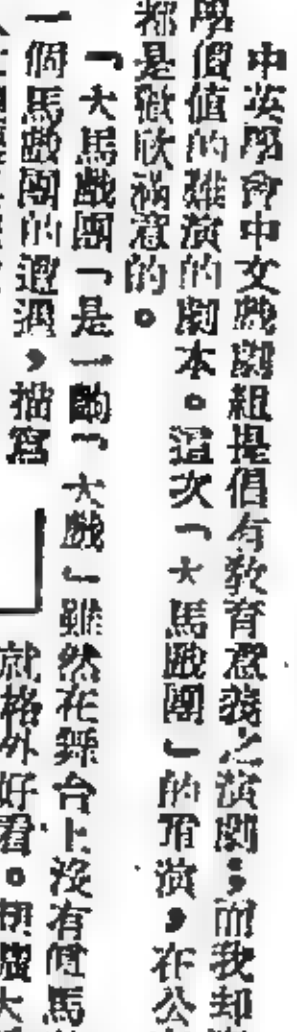 中英學會中文戲劇組是倡有敎育意義之演劇；而我却
學價值的雖演的劇本。這次「大馬戲團」的重演，在公
都是徵歉滿意的。
「大馬戲團「是一齣「大戲」雖然在舞台上沒有眞馬
一個馬戲團的遭遇，描寫
就格外好看。胡 大